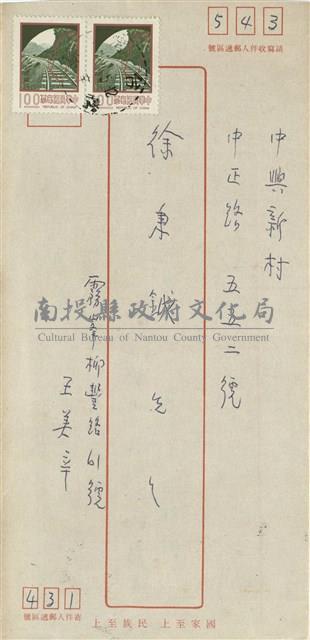 543
請寫收件人郵遞區號
中華民國郵票
REPUBLIC OF CHINA
100
100
中興新村
中正路 五五二號
徐秉鉞先生
霧峯柳豐路61號
王美幸
南投縣政府文化局
Cultural Bureau of Nantou County Government
431
寄件人郵遞區號
國家至上 民族至上